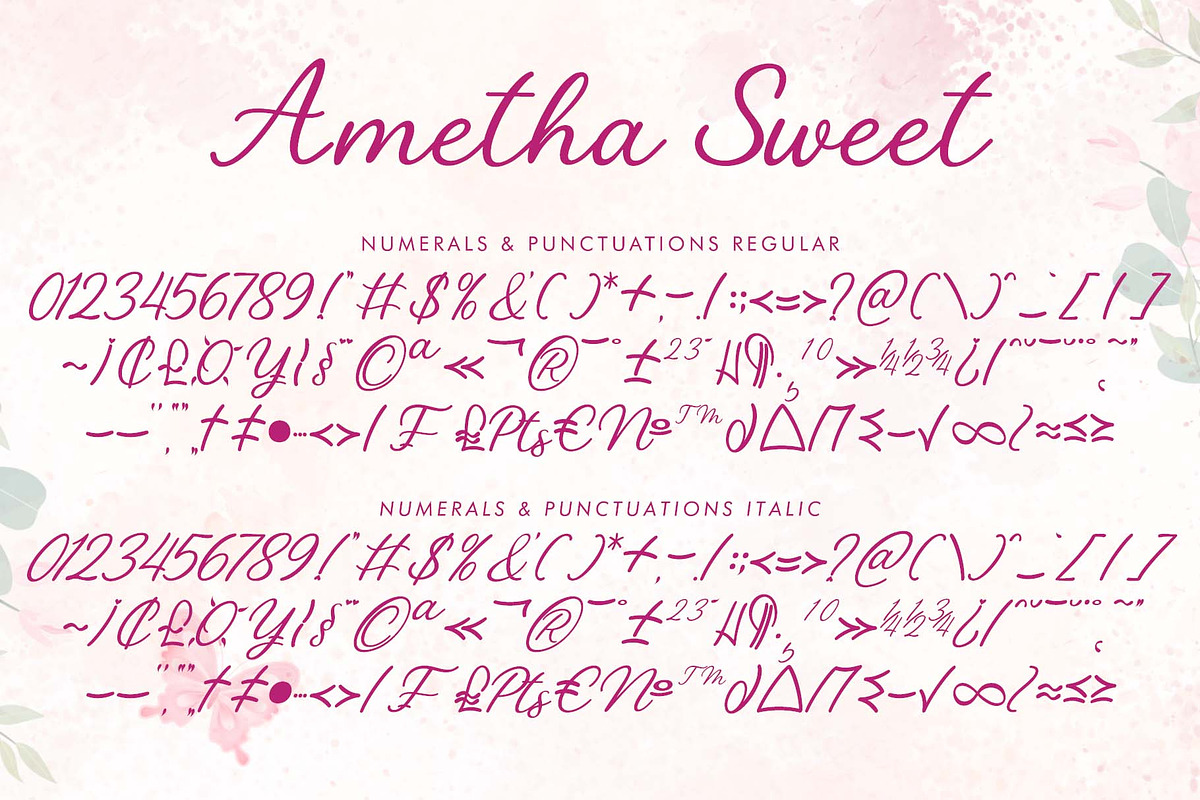 Ametha Sweet
NUMERALS & PUNCTUATIONS REGULAR
0123456789!"#$%&'()*+,-./:;<=>?@(\)^_`[/]
~¡₵£¤¥¦§¨©ª«¬®¯°±23´µ¶·¸10»¼½¾¿/ˆˇˉ˘˙˚˛˜˝
–—‘’‚“”„†‡•…‹›/₣₤₧€№™∂∆∏∑−√∞∫≈≤≥
NUMERALS & PUNCTUATIONS ITALIC
0123456789!"#$%&'()*+,-./:;<=>?@(\)^_`[/]
~¡₵£¤¥¦§¨©ª«¬®¯°±23´µ¶·¸10»¼½¾¿/ˆˇˉ˘˙˚˛˜˝
–—‘’‚“”„†‡•…‹›/₣₤₧€№™∂∆∏∑−√∞∫≈≤≥